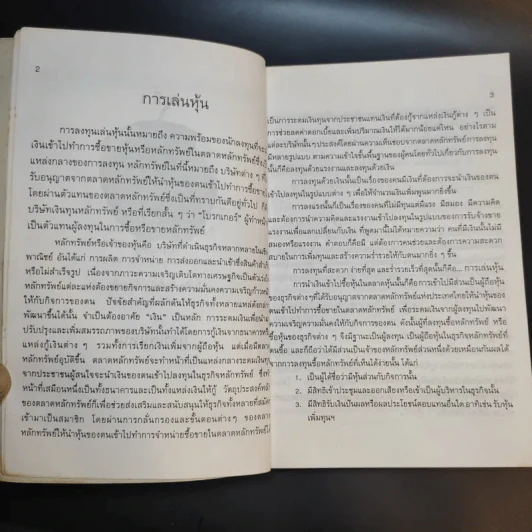 2
การเล่นหุ้น
การลงทุนเล่นหุ้นนั้นหมายถึง ความพร้อมของนักลงทุนที่จะ
เงินเข้าไปทำการซื้อขายหุ้นหรือหลักทรัพย์ในตลาดหลักทรัพย์ซึ่ง
แหล่งกลางของการลงทุน หลักทรัพย์ในที่นี้หมายถึง บริษัทต่าง ๆ
รับอนุญาตจากตลาดหลักทรัพย์ให้นำหุ้นของตนเข้าไปทำการซื้อขาย
โดยผ่านตัวแทนของตลาดหลักทรัพย์ซึ่งเป็นที่ทราบกันดีอยู่ทั่วไป คือ
บริษัทเงินทุนหลักทรัพย์ หรือที่เรียกสั้น ๆ ว่า "โบรกเกอร์" ผู้ทำหน้า
เป็นตัวแทนผู้ลงทุนในการซื้อหรือขายหลักทรัพย์
หลักทรัพย์หรือเจ้าของหุ้นคือ บริษัทที่ดำเนินธุรกิจหลากหลายในเชิง
พาณิชย์ อันได้แก่ การผลิต การจำหน่าย การส่งออกและนำเข้าซึ่งสินค้าสำเร็จ
หรือไม่สำเร็จรูป เนื่องจากภาวะความเจริญเติบโตทางเศรษฐกิจเป็นตัวเร่ง
หลักทรัพย์แต่ละแห่งต้องขยายกิจการและสร้างความมั่นคงความเจริญก้าวหน้า
ให้กับกิจการของตน ปัจจัยสำคัญที่ผลักดันให้ธุรกิจทั้งหลายแหล่ดังกล่าว
พัฒนาขึ้นได้นั้น จำเป็นต้องอาศัย "เงิน" เป็นหลัก การระดมเงินเพื่อนำ
ปรับปรุงและเพิ่มสมรรถภาพของบริษัทนั้นทำได้โดยการกู้เงินจากธนาคารหรือ
แหล่งกู้เงินต่าง ๆ รวมทั้งการเรียกเงินเพิ่มจากผู้ถือหุ้น แต่เมื่อมีตลาด
หลักทรัพย์อุบัติขึ้น ตลาดหลักทรัพย์จะทำหน้าที่เป็นแหล่งกลางระดมเงินทุน
จากประชาชนผู้สนใจจะนำเงินของตนเข้าไปลงทุนในธุรกิจหลักทรัพย์ ซึ่งทำ
หน้าที่เสมือนหนึ่งเป็นทั้งธนาคารและเป็นทั้งแหล่งเงินให้กู้ วัตถุประสงค์หลัก
ของตลาดหลักทรัพย์ก็เพื่อช่วยส่งเสริมและสนับสนุนให้ธุรกิจทั้งหลายที่สมัคร
เข้ามาเป็นสมาชิก โดยผ่านการกลั่นกรองและขั้นตอนต่างๆ ของตลาด
หลักทรัพย์ให้นำหุ้นของตนเข้าไปทำการจำหน่ายซื้อขายในตลาดหลักทรัพย์ได้
3
เป็นการระดมเงินทุนจากประชาชนแทนเงินที่ต้องกู้จากแหล่งเงินกู้ต่าง ๆ เป็น
การช่วยลดค่าดอกเบี้ยและเพิ่มปริมาณเงินให้ได้มากน้อยแค่ไหน อย่างไรตาม
แต่ละบริษัทนั้น ๆ ประสงค์โดยผ่านความเห็นชอบจากตลาดหลักทรัพย์การลงทุน
มีหลายรูปแบบ ตามความเข้าใจชั้นพื้นฐานของผู้คนโดยทั่วไปเกี่ยวกับการลงทุน
นั้นก็คือลงทุนด้วยแรงงานและลงทุนด้วยเงิน
การลงทุนด้วยเงินนั้นเป็นเรื่องของคนมีเงินที่ต้องการจะนำเงินของตน
เข้าไปลงทุนในรูปแบบต่าง ๆ เพื่อให้จำนวนเงินเพิ่มพูนมากยิ่งขึ้น
การลงแรงนั้นก็เป็นเรื่องของคนที่ไม่มีทุนแต่มีแรง มีสมอง มีความคิด
และต้องการนำความคิดและแรงงานเข้าไปลงทุนในรูปแบบของการรับจ้างขาย
แรงงานเพื่อแลกเปลี่ยนกับเงิน ที่พูดมานี้ไม่ได้หมายความว่า คนที่มีเงินนั้นไม่มี
สมองหรือแรงงาน คำตอบก็คือมี แต่ต้องการคนช่วยและต้องการความสะดวก
สบายในการเพิ่มพูนและสร้างความร่ำรวยให้กับตนมากยิ่ง ๆ ขึ้น
การลงทุนที่สะดวก ง่ายที่สุด และร่ำรวยเร็วที่สุดนั้นก็คือ... การเล่นหุ้น
การนำเงินเข้าไปซื้อหุ้นในตลาดหุ้นนั้นก็คือการเข้าไปมีส่วนเป็นผู้ถือหุ้น
ของธุรกิจต่างๆที่ได้รับอนุญาตจากตลาดหลักทรัพย์แห่งประเทศไทยให้นำหุ้นของ
ตนเข้าทำการซื้อขายในตลาดหลักทรัพย์ เพื่อระดมเงินจากผู้ลงทุนไปพัฒนา
ความเจริญความมั่นคงให้กับกิจการของตน ดังนั้นผู้ที่ลงทุนซื้อหลักทรัพย์ หรือ
ซื้อหุ้นของธุรกิจต่าง ๆ จึงมีฐานะเป็นผู้ลงทุน เป็นผู้ถือหุ้นในธุรกิจหลักทรัพย์ที่
ตนซื้อ และก็ถือว่าได้มีส่วนเป็นเจ้าของหลักทรัพย์ส่วนหนึ่งด้วยเหมือนกันผลได้
จากการลงทุนซื้อหลักทรัพย์ที่เห็นได้ง่ายนั้น ได้แก่
1. เป็นผู้ได้ชื่อว่ามีหุ้นส่วนกับกิจการนั้น
2. มีสิทธิเข้าประชุมและออกเสียงหรือเข้าเป็นผู้บริหารในธุรกิจนั้น
3. มีสิทธิรับเงินปันผลหรือผลประโยชน์ตอบแทนอื่นใด อาทิเช่น รับหุ้น
เพิ่มทุนฯ